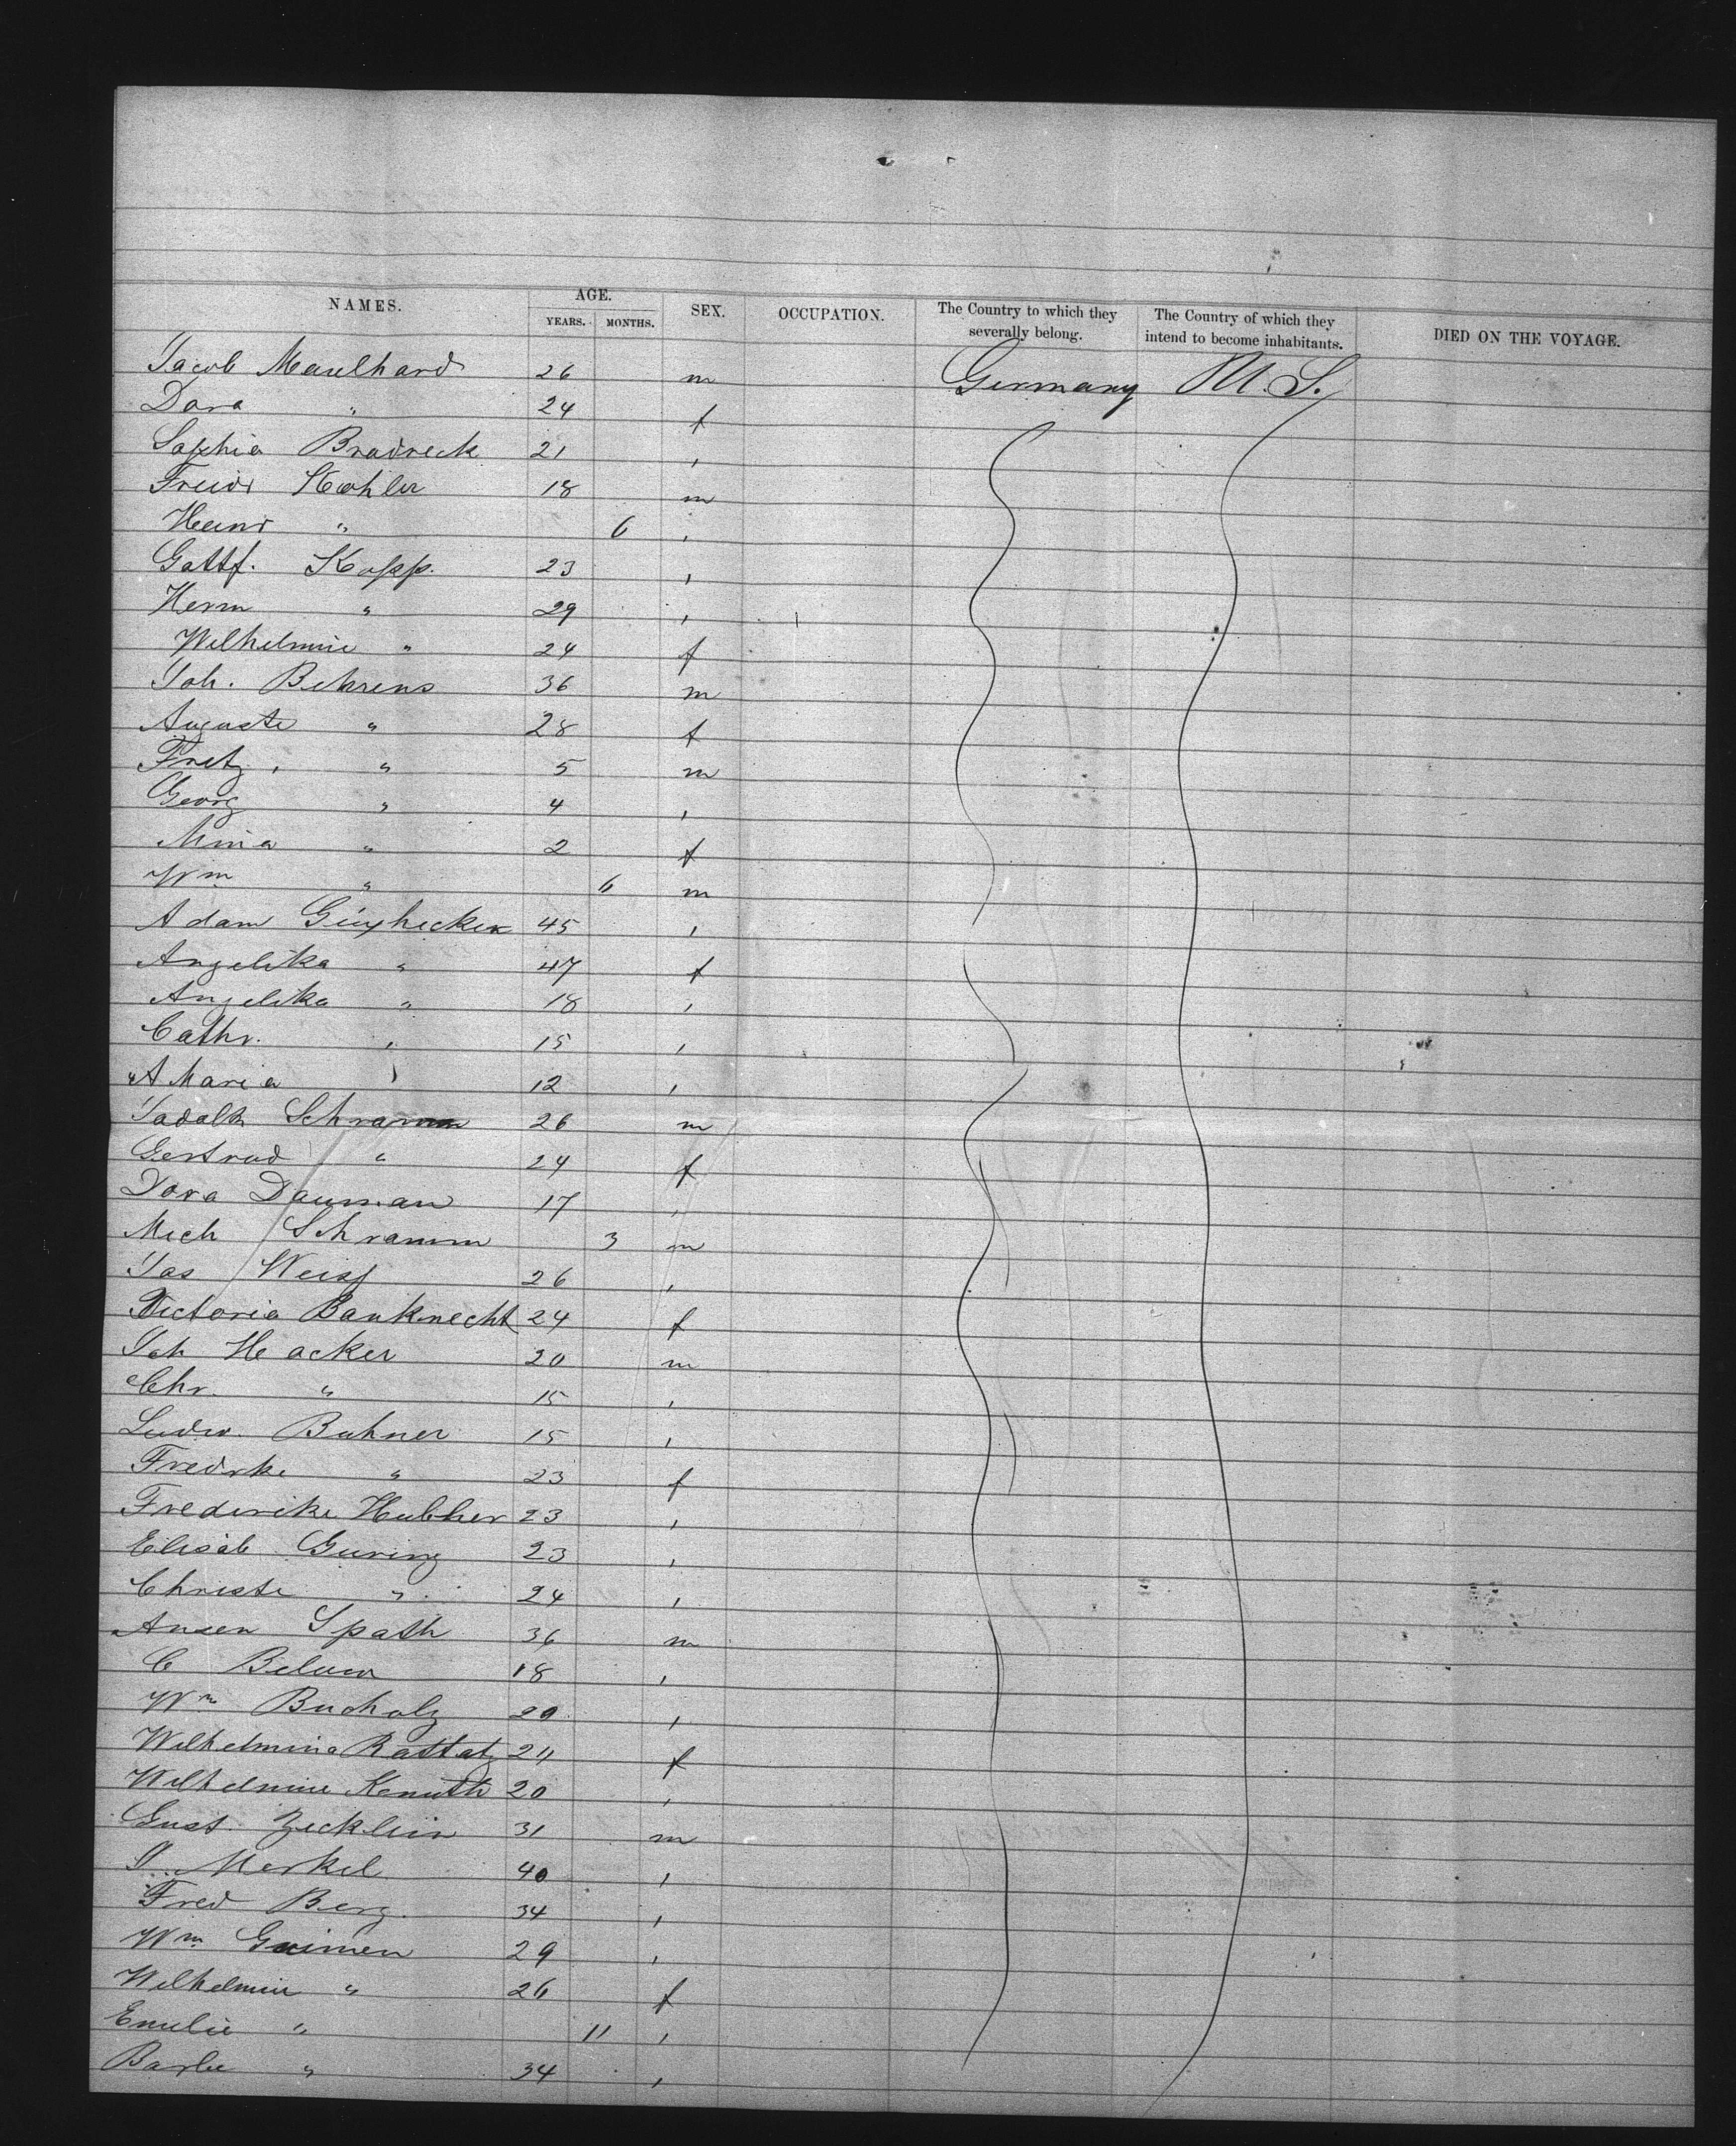 NAMES. AGE. SEX. OCCUPATION. The Country to which they severally belong. The Country of which they intend to become inhabitants. DIED ON THE VOYAGE.
YEARS. MONTHS.
Jacob Maulhard 26 m Germany U.S.
Dora " 24 f
Sophia Bradreck 21 ,
Freidr Kohler 18 m
Heinr " 6 ,
Gottf. Kopp. 23 ,
Herm " 29 ,
Wilhelmine " 24 f
Joh. Behrens 36 m
Auguste " 28 f
Fritz " 5 m
Georg " 4 ,
Mina " 2 f
Wm " 6 m
Adam 45 ,
Angelika " 47 f
Angelika " 18 ,
Cathr. " 15 ,
A Maria " 12 ,
Schramm 26 m
Gertrud " 24 f
Dora Dauman 17 ,
Mich Schramm 3 m
Jas Weiss 26 ,
Victoria Bauknecht 24 f
Joh Hacker 20 m
Chr. " 15 ,
Ludw. Buhner 15 ,
Fredrke " 23 f
Frederike Hubher 23 ,
Elisab Guring 23 ,
Christe " 24 ,
Spath 36 m
C Below 18 ,
Wm Bucholz 20 ,
Wilhelmina Rattatz 24 f
Wilhelmine Kemuth 20 ,
Gust. Zecklein 31 m
J. Merkel 40 ,
Fred Berg. 34 ,
Wm Greimen 29 ,
Wilhelmin " 26 f
Emilie " 11 ,
Barbe " 34 ,